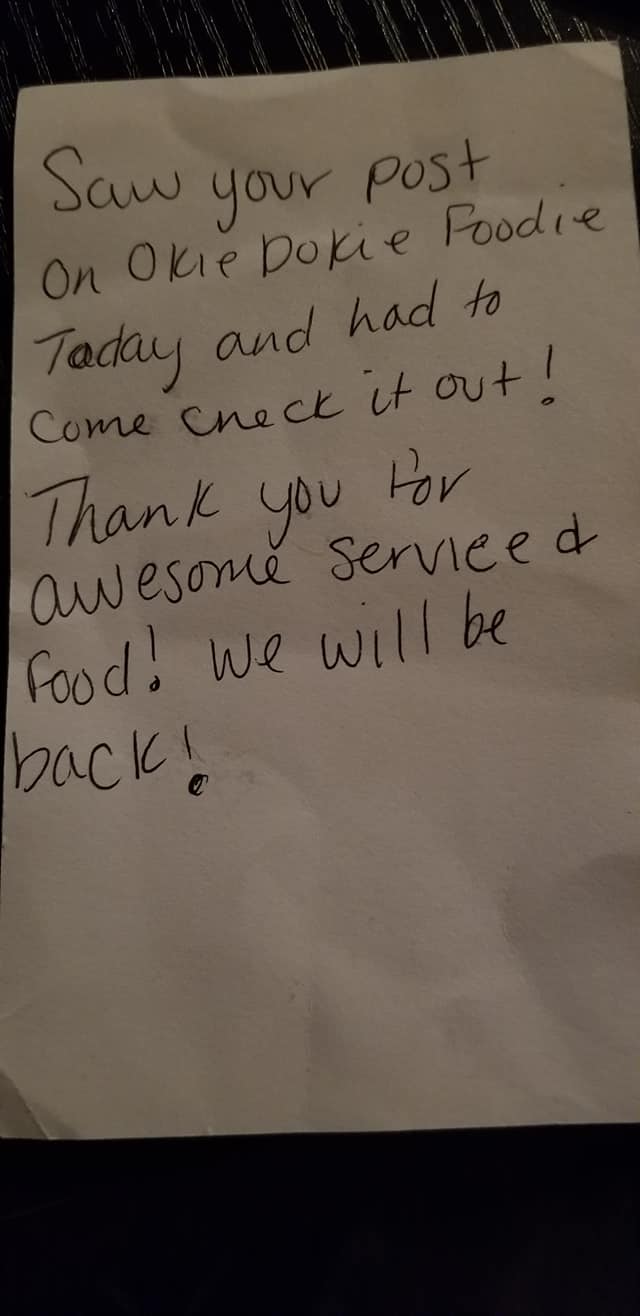 Saw your post
on Okie Dokie Foodie
Today and had to
Come check it out!
Thank you for
awesome service &
food! We will be
back!